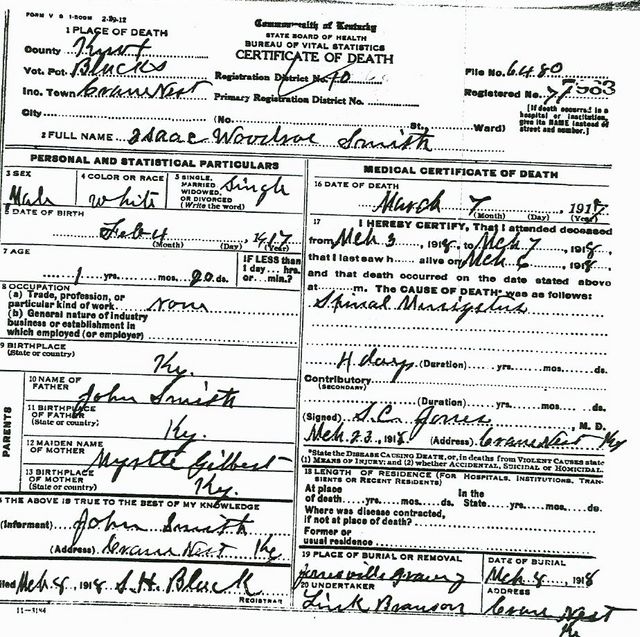 FORM V S 1-500M 2-29-12
Commonwealth of Kentucky
STATE BOARD OF HEALTH
BUREAU OF VITAL STATISTICS
CERTIFICATE OF DEATH
1 PLACE OF DEATH
County Knox
Vot. Pct. Blacks
Inc. Town Crane Nest
City
Registration District No. 40
Primary Registration District No.
File No. 6480
Registered No. 77
(No. St., Ward)
[If death occurred in a hospital or institution, give its NAME instead of street and number.]
2 FULL NAME Isaac Woodson Smith
PERSONAL AND STATISTICAL PARTICULARS
3 SEX Male
4 COLOR OR RACE White
5 SINGLE, MARRIED, WIDOWED, OR DIVORCED (Write the word) Single
6 DATE OF BIRTH
Feb 4 1917
(Month) (Day) (Year)
7 AGE
1 yrs. mos. ds.
IF LESS than 1 day hrs. or min.?
8 OCCUPATION
(a) Trade, profession, or
particular kind of work None
(b) General nature of industry
business or establishment in
which employed (or employer)
9 BIRTHPLACE
(State or country)
Ky.
PARENTS
10 NAME OF FATHER John Smith
11 BIRTHPLACE OF FATHER (State or country) Ky.
12 MAIDEN NAME OF MOTHER Myrtle Gilbert
13 BIRTHPLACE OF MOTHER (State or country) Ky.
THE ABOVE IS TRUE TO THE BEST OF MY KNOWLEDGE
(Informent) John Smith
(Address) Crane Nest Ky.
Mch 8, 1918 S.H. Black
REGISTRAR
11-3184
MEDICAL CERTIFICATE OF DEATH
16 DATE OF DEATH
March 7 191
(Month) (Day) (Year)
17 I HEREBY CERTIFY, That I attended deceased
from Mch 3, 1918, to Mch 7, 1918,
that I last saw h alive on Mch 6, 1918,
and that death occurred on the date stated above
at m. The CAUSE OF DEATH* was as follows:
Spinal
4 days (Duration) yrs. mos. ds.
Contributory
(SECONDARY)
(Duration) yrs. mos. ds.
(Signed) S.C. Jones, M. D.
Mch 23, 1918 (Address) Crane Nest Ky
*State the DISEASE CAUSING DEATH, or, in deaths from VIOLENT CAUSES state
(1) MEANS OF INJURY; and (2) whether ACCIDENTAL, SUICIDAL or HOMICIDAL.
18 LENGTH OF RESIDENCE (FOR HOSPITALS, INSTITUTIONS, TRANSIENTS OR RECENT RESIDENTS)
At place of death yrs. mos. ds. In the State yrs. mos. ds.
Where was disease contracted,
if not at place of death?
Former or
usual residence
19 PLACE OF BURIAL OR REMOVAL
DATE OF BURIAL
Mch 8, 1918
20 UNDERTAKER
Link Branson
ADDRESS
Crane Nest
Ky